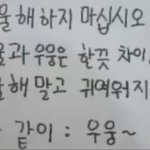 울해하지 마십시오
울과 우웅은 한끗 차이.
울해 말고 귀여워지
같이 : 우웅~